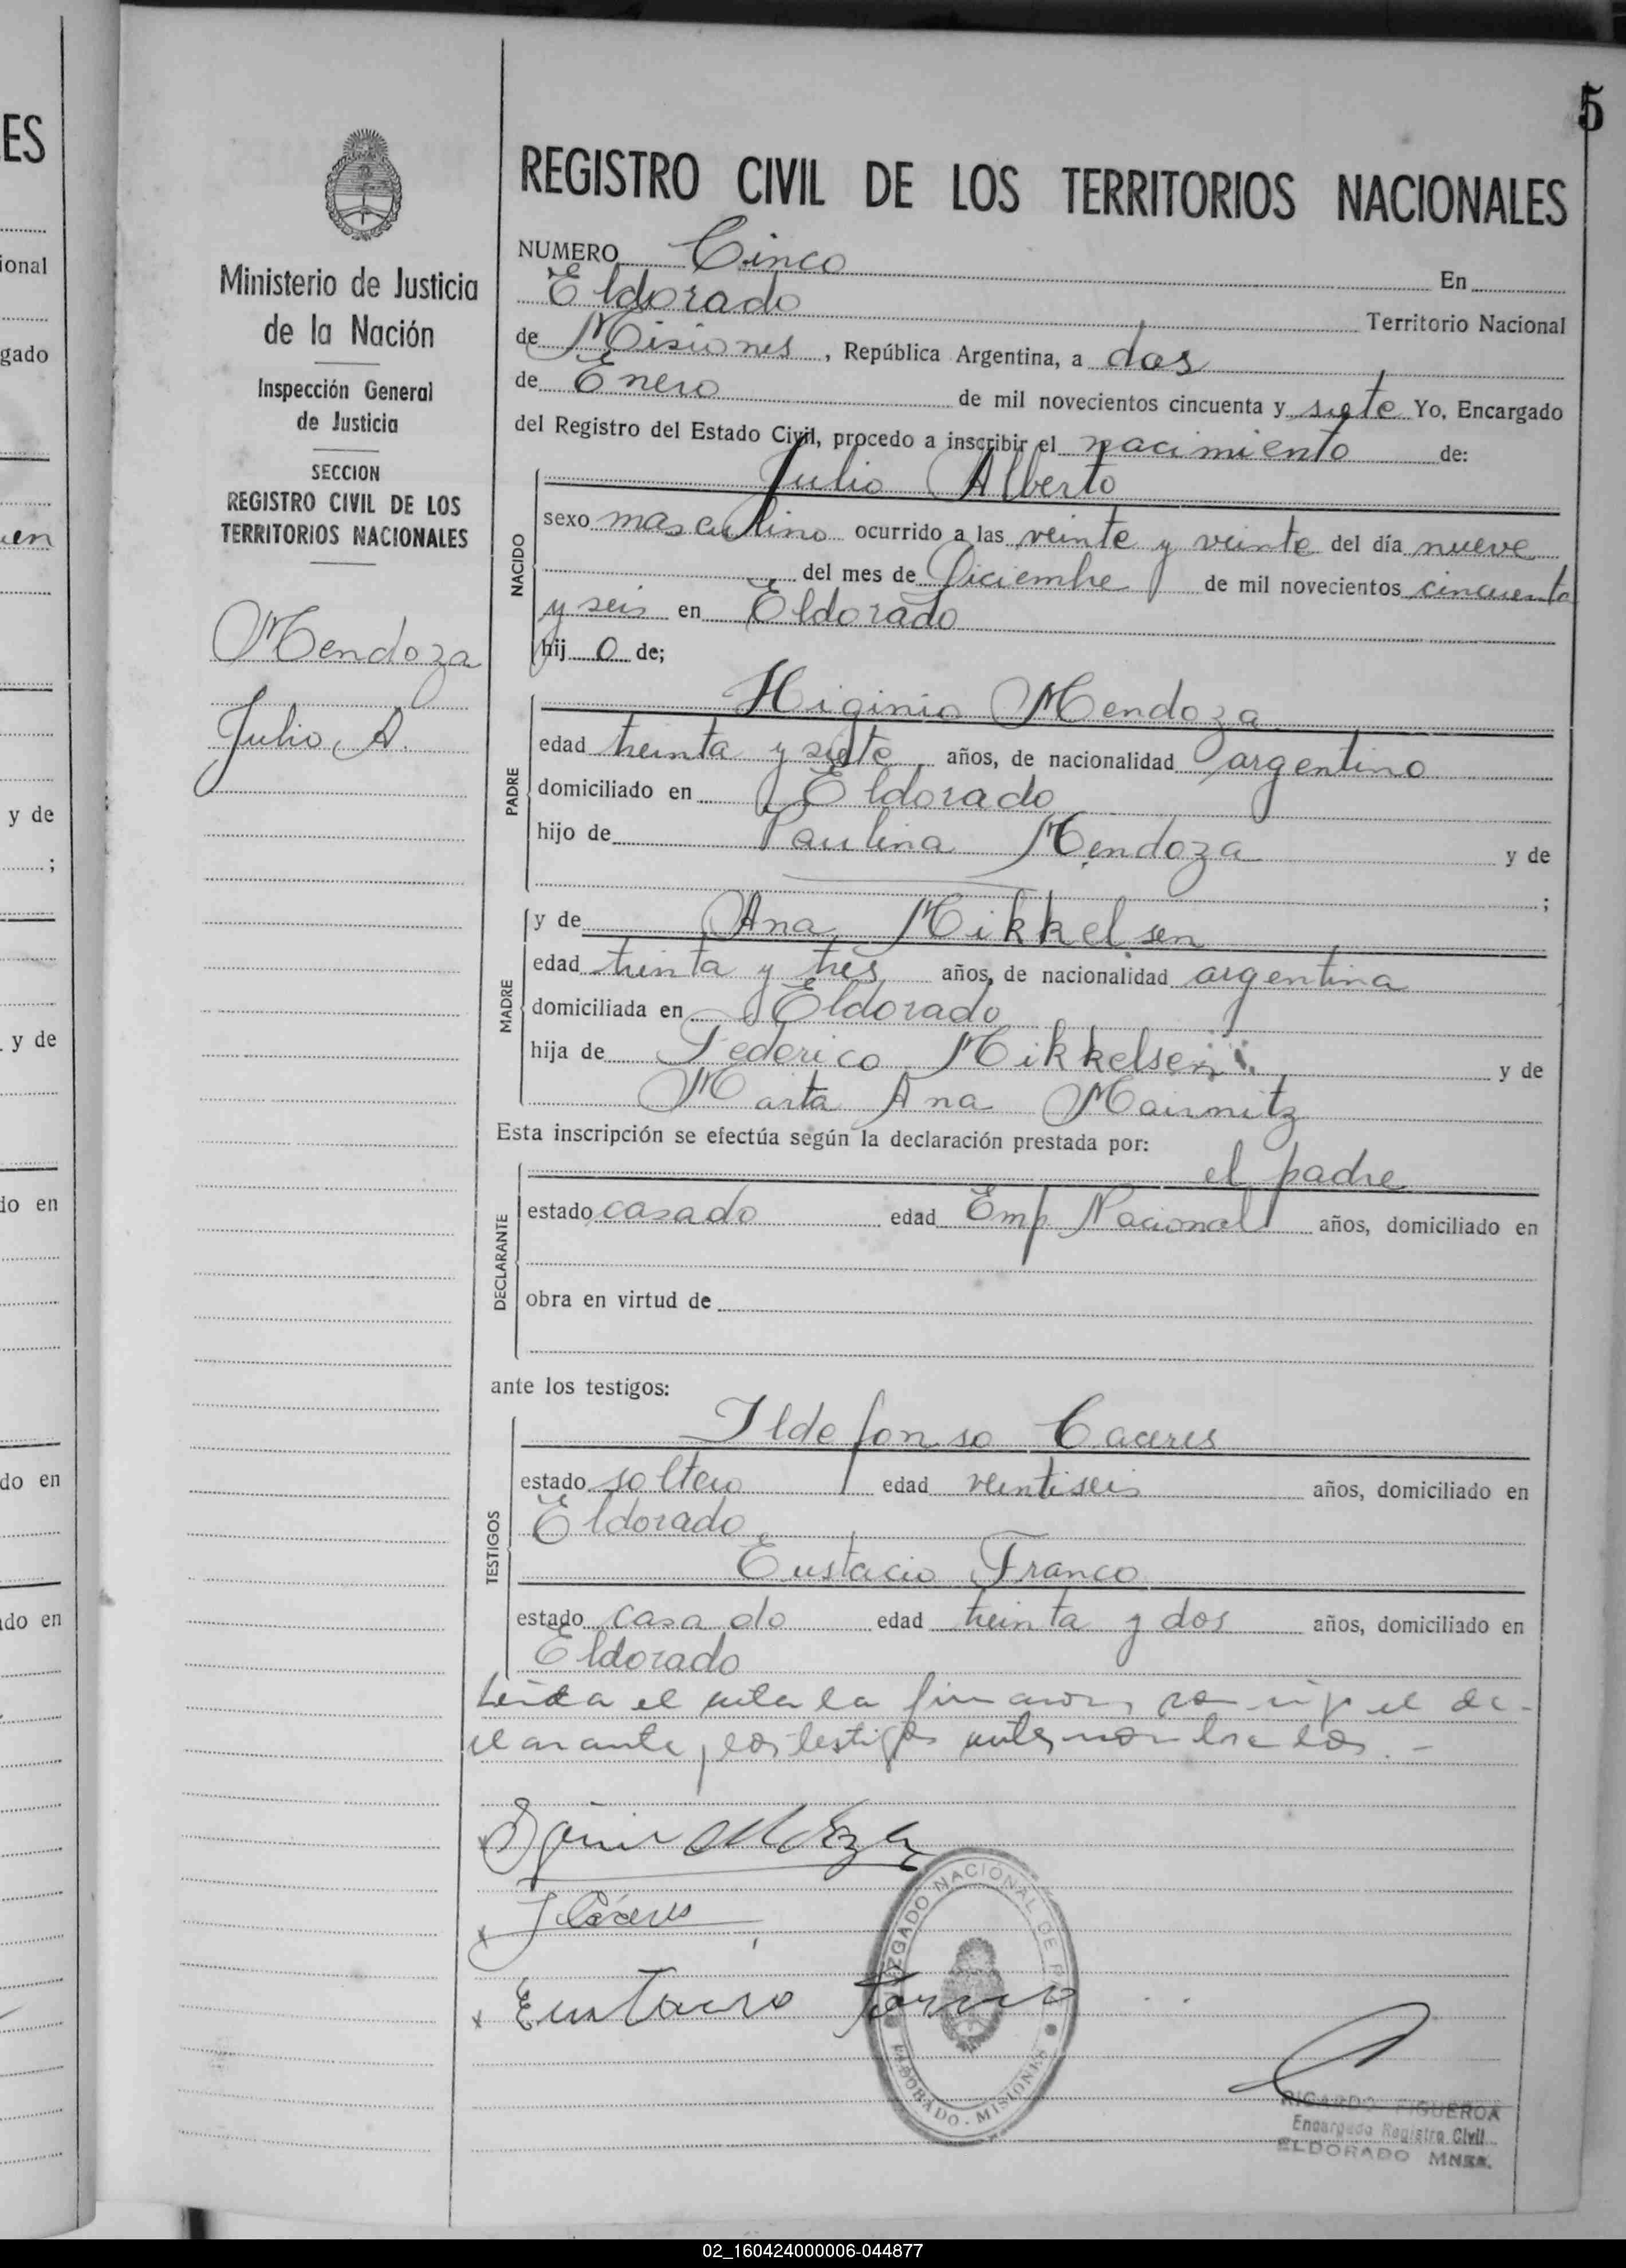 5
ES
ional
gado
uen
y de
;
y de
do en
do en
do en
Ministerio de Justicia
de la Nación
Inspección General
de Justicia
SECCION
REGISTRO CIVIL DE LOS
TERRITORIOS NACIONALES
Mendoza
Julio A.
REGISTRO CIVIL DE LOS TERRITORIOS NACIONALES
NUMERO Cinco En
Eldorado Territorio Nacional
de Misiones, República Argentina, a dos
de Enero de mil novecientos cincuenta y siete Yo, Encargado
del Registro del Estado Civil, procedo a inscribir el nacimiento de:
NACIDO
Julio Alberto
sexo masculino ocurrido a las veinte y veinte del día nueve
del mes de Diciembre de mil novecientos cincuenta
y seis en Eldorado
hij o de;
PADRE
Higinio Mendoza
edad treinta y siete años, de nacionalidad argentino
domiciliado en Eldorado
hijo de Paulina Mendoza y de
;
MADRE
y de Ana Mikkelsen
edad treinta y tres años, de nacionalidad argentina
domiciliada en Eldorado
hija de Federico Mikkelsen y de
Marta Ana Mairnitz
Esta inscripción se efectúa según la declaración prestada por:
DECLARANTE
el padre
estado casado edad Emp Nacional años, domiciliado en
obra en virtud de
ante los testigos:
TESTIGOS
Ildefonso Caceres
estado soltero edad veintiseis años, domiciliado en
Eldorado
Eustacio Franco
estado casado edad treinta y dos años, domiciliado en
Eldorado
Leida el acta la firmaron, conmigo el de-
clarante, los testigos antes nombrados.-
I Cáceres
Eustacio Franco
JUZGADO NACIONAL DE PAZ
ELDORADO - MISIONES
RICARDO FIGUEROA
Encargado Registro Civil
ELDORADO MNES.
02_160424000006-044877